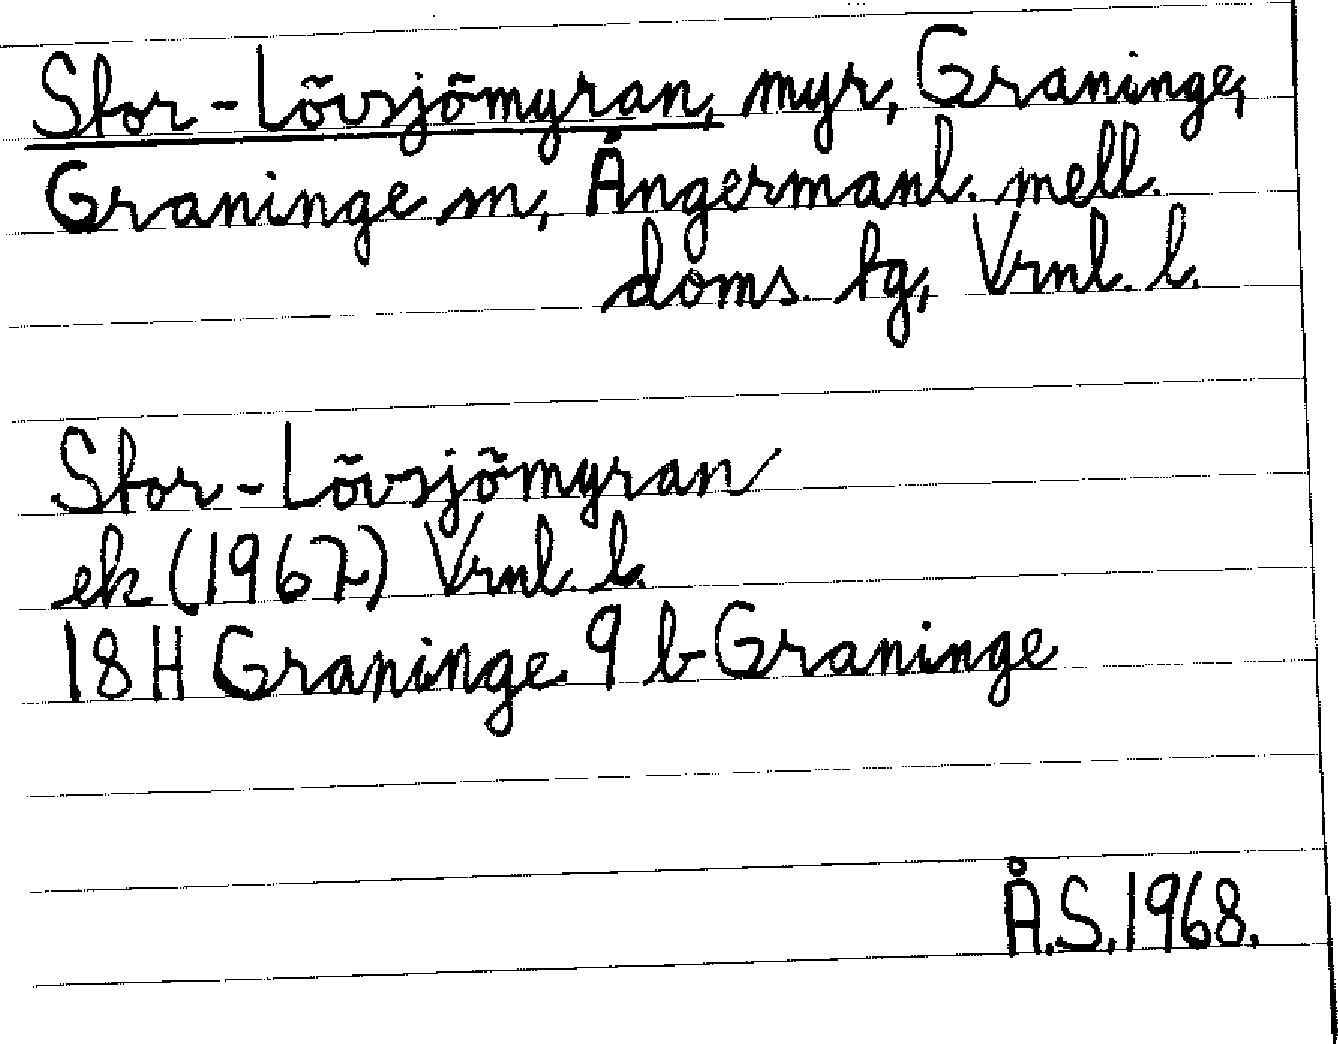 Stor-Lövsjömyran, myr, Graninge,
Graninge sn, Ångermanl. mell.
doms. tg, Vrnl. l.
Stor-Lövsjömyran
ek (1967) Vrnl. l.
18 H Graninge 9 b Graninge
Å.S. 1968.